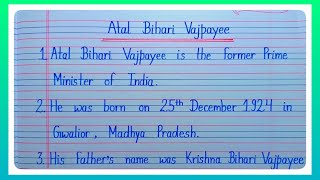 Atal Bihari Vajpayee
1. Atal Bihari Vajpayee is the former Prime
Minister of India.
2. He was born on 25th December 1924 in
Gwalior, Madhya Pradesh.
3. His Father's name was Krishna Bihari Vajpayee